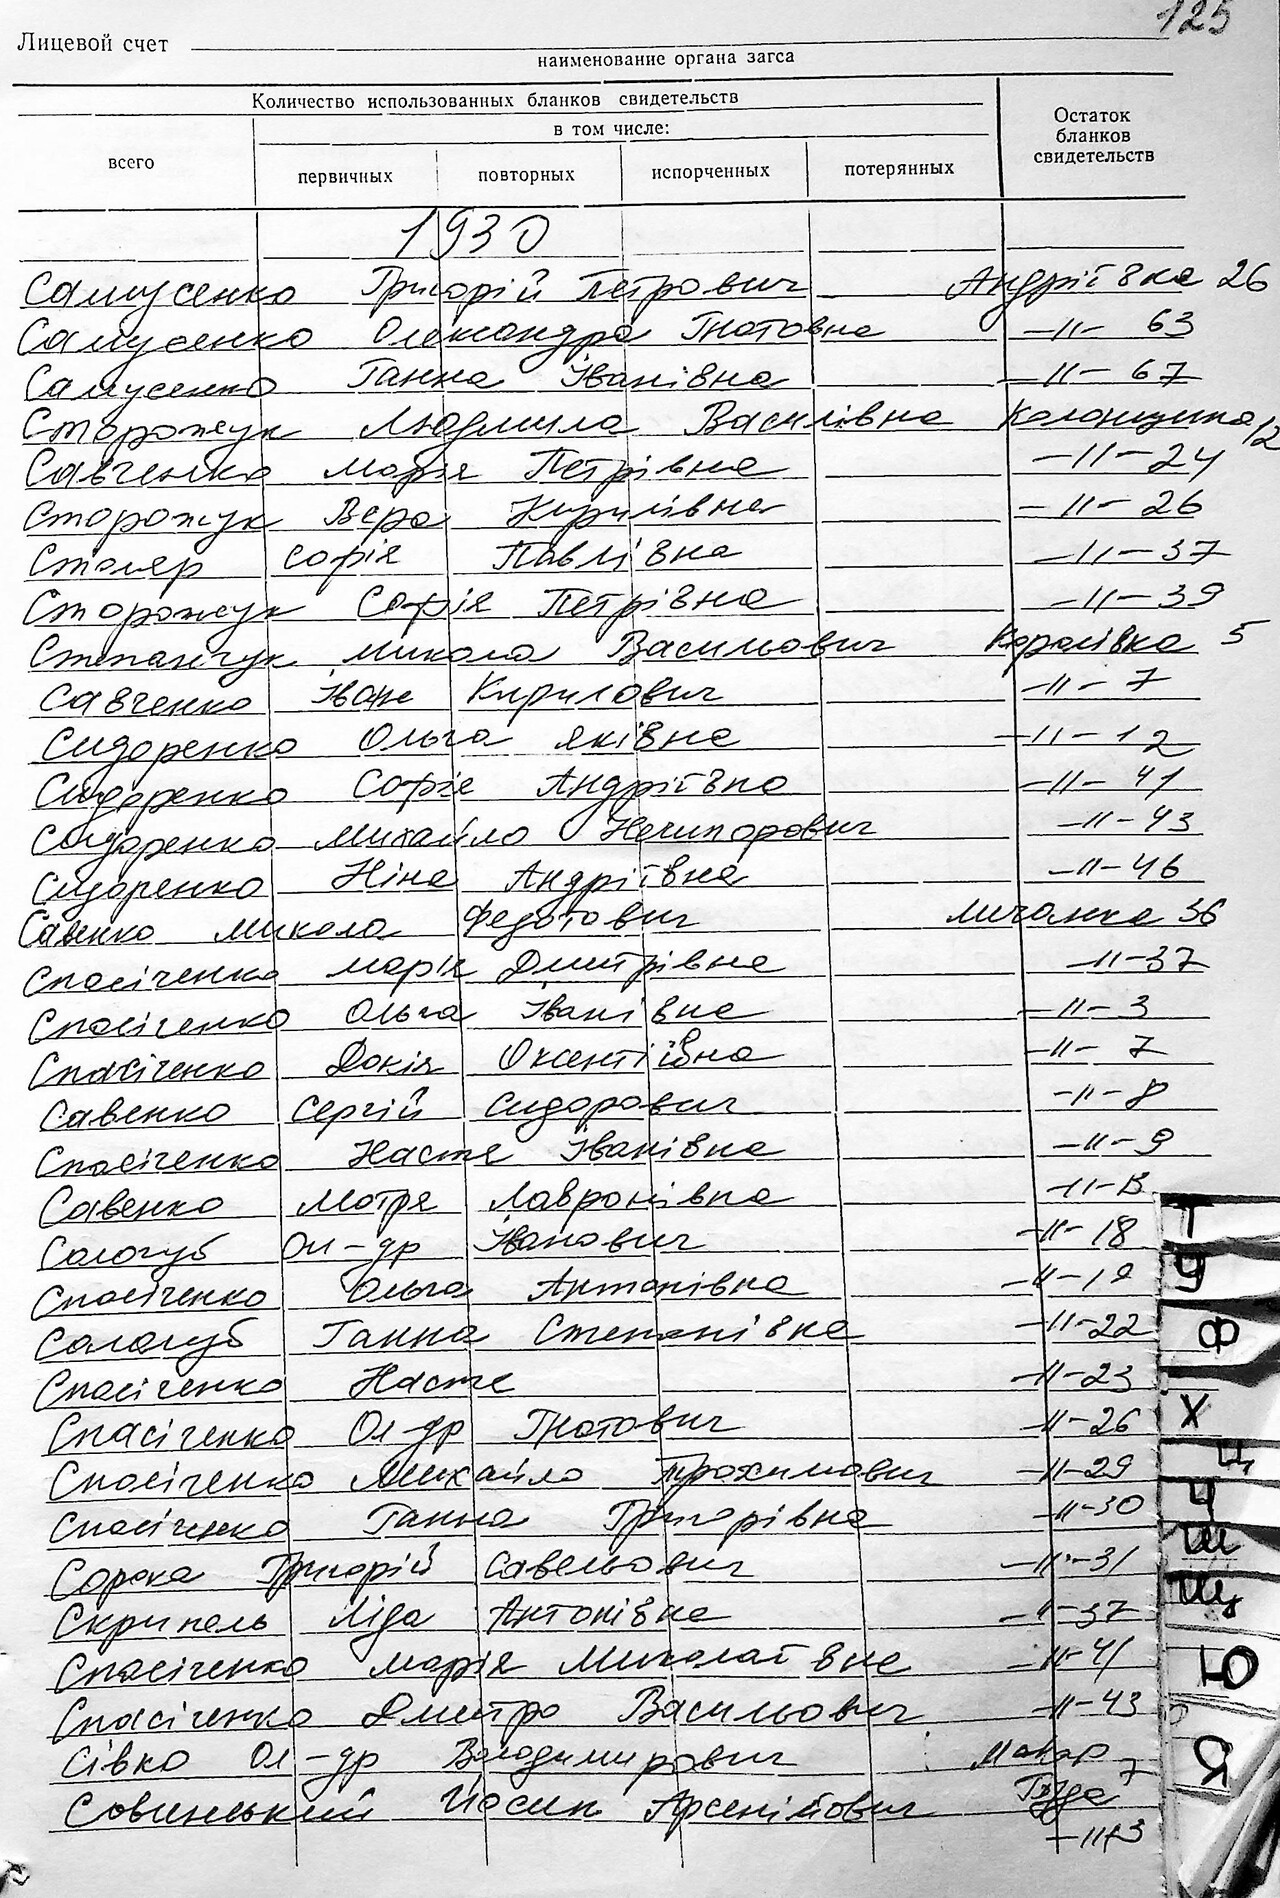 125
Лицевой счет
наименование органа загса
Количество использованных бланков свидетельств
Остаток бланков свидетельств
всего
в том числе:
первичных повторных испорченных потерянных
1930
Самусенко Григорій Петрович Андріївка 26
Самусенко Олександра Гнатовна -11- 63
Самусенко Ганна Іванівна -11- 67
Сторожук Людмила Василівна Колонщина 12
Савченко Марія Петрівна -11- 24
Сторожук Вера Кирилівна -11- 26
Столяр Софія Павлівна -11- 37
Сторожук Софія Петрівна -11- 39
Степанчук Микола Васильович Королівка 5
Савченко Іван Кирилович -11- 7
Сидоренко Ольга Яківна -11- 12
Сидоренко Софія Андріївна -11- 41
Сидоренко Михайло Нечипорович -11- 43
Сидоренко Ніна Андріївна -11- 46
Савенко Микола Федотович Мичалка 36
Спасіченко Марія Дмитрівна -11- 37
Спасіченко Ольга Іванівна -11- 3
Спасіченко Докія Оксентіївна -11- 7
Савенко Сергій Сидорович -11- 8
Спасіченко Настя Іванівна -11- 9
Савенко Мотря Лавронівна -11- 13
Сологуб Ол-др Іванович -11- 18
Спасіченко Ольга Антонівна -11- 19
Сологуб Ганна Степанівна -11- 22
Спасіченко Настя -11- 23
Спасіченко Ол-др Гнатович -11- 26
Спасіченко Михайло Трохимович -11- 29
Спасіченко Ганна Григорівна -11- 30
Сорока Григорій Савельович -11- 31
Скрипель Ліда Антонівна -11- 37
Спасіченко Марія Миколаївна -11- 41
Спасіченко Дмитро Васильович -11- 43
Сівко Ол-др Володимирович Макар 7
Совинський Йосип Арсенійович Буда
-11- 3
Т
У
Ф
Х
Ц
Ч
Ш
Щ
Ю
Я